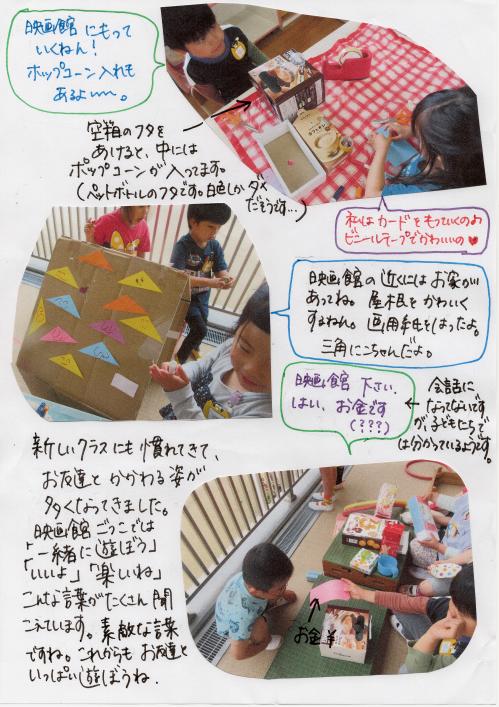 映画館にもって
いくねん！
ポップコーン入れも
あるよ〜〜。
空箱のフタを
あけると、中には
ポップコーンが入ってます。
(ペットボトルのフタです。白色しかダメ
だそうです…)
私はカードをもっていくの♪
ビニールテープでかわいいの♥
映画館の近くにはお家が
あってね。屋根をかわいく
するねん。画用紙をはったよ。
三角にこちゃんだよ。
映画館 下さい。
はい、お金です
(???)
← 会話に
なってないです
が、子どもたちで
は分かっているようです。
新しいクラスにも慣れてきて、
お友達とかかわる姿が
多くなってきました。
映画館ごっこでは
「一緒に遊ぼう」
「いいよ」「楽しいね」
こんな言葉がたくさん聞
こえています。素敵な言葉
ですね。これからもお友達と
いっぱい遊ぼうね。
お金